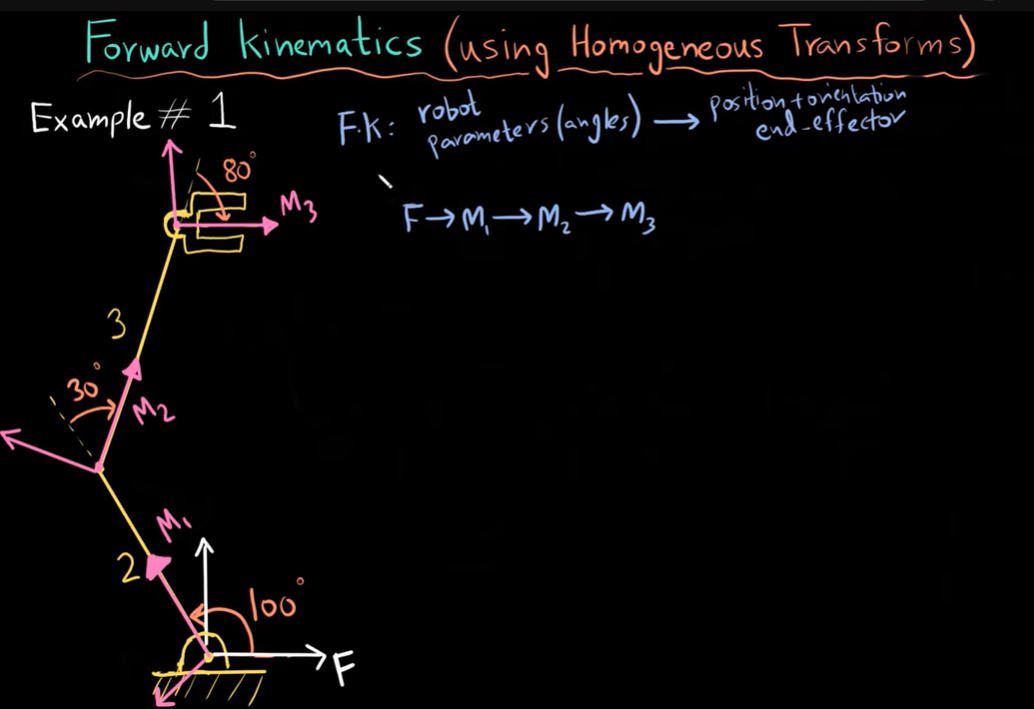 Forward kinematics (using Homogeneous Transforms)
Example # 1
F.K: robot parameters (angles) → position + orientation end-effector
F → M₁ → M₂ → M₃
80°
M₃
3
30°
M₂
M₁
2
100°
F